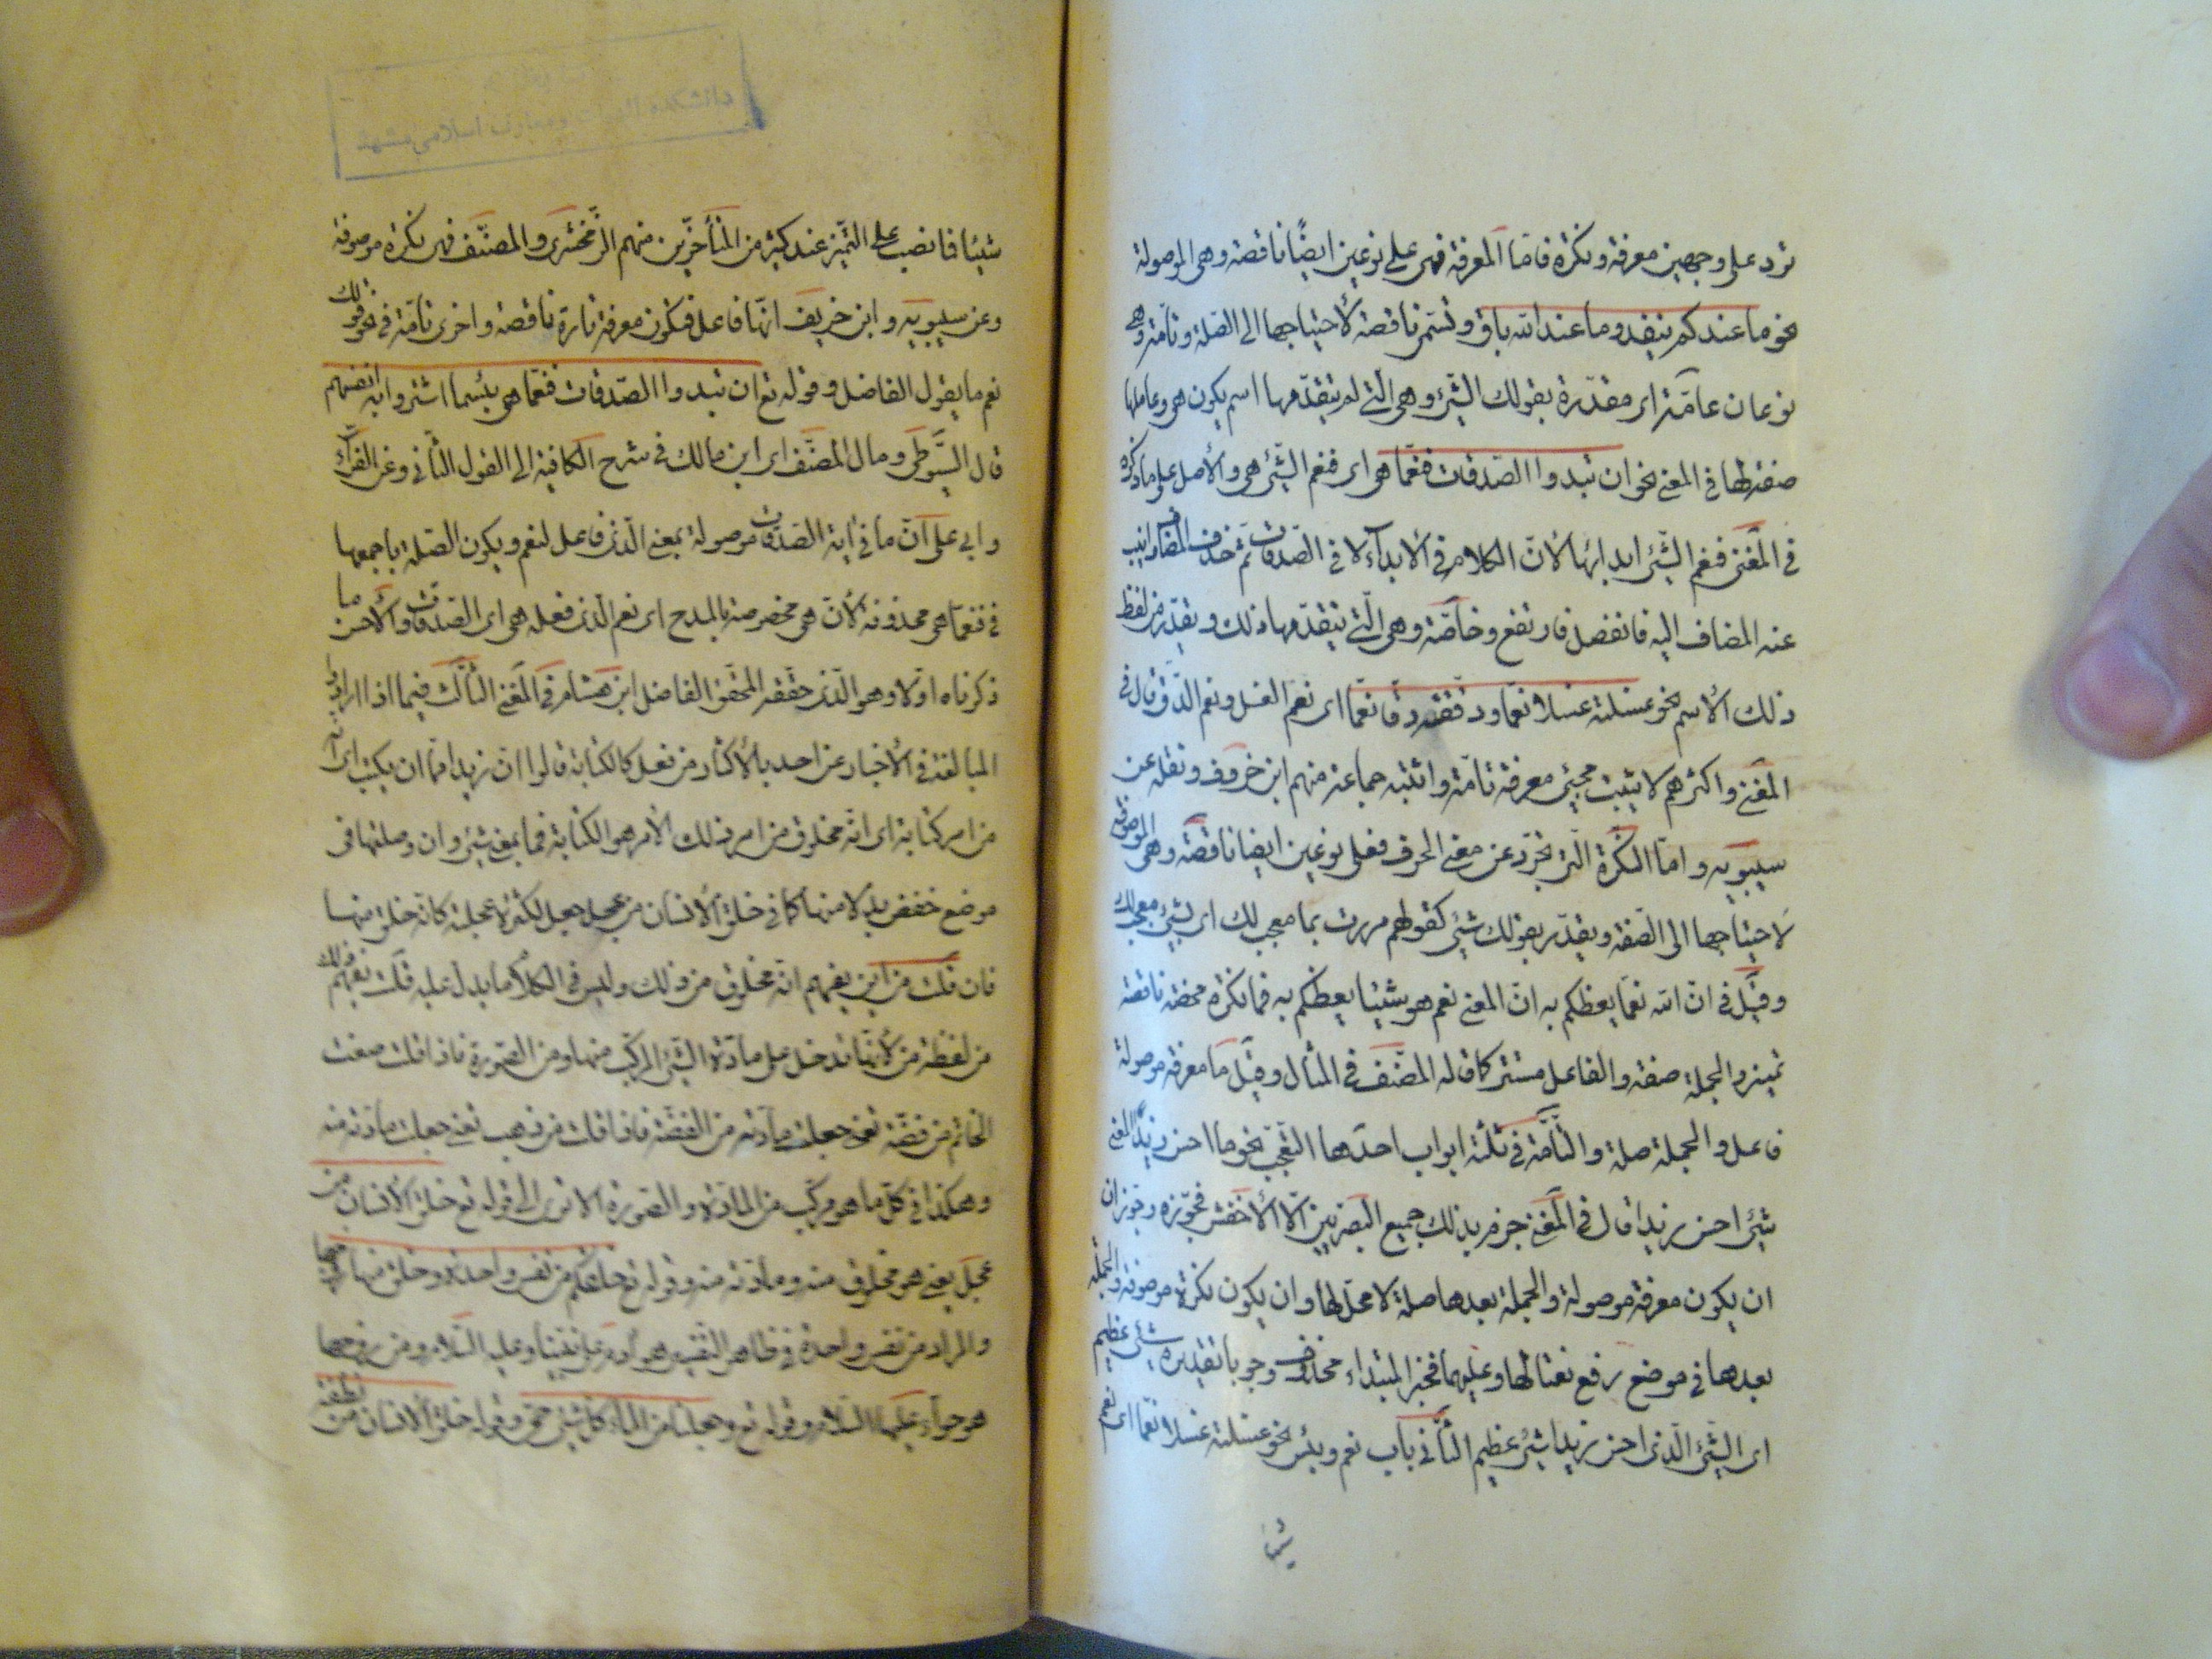 ترد على وجهين معرفة ونكرة فامّا المعرفة فهى على نوعين ايضًا ناقصة وهى الموصولة
نحو ما عندكم ينفد وما عند الله باق وتسمّى ناقصة لاحتياجها الى الصّلة وتامّة وهى
نوعان عامّة اى مقدّرة بقولك الشّئ وهى الّتى لم يتقدّمها اسم يكون هى وعاملها
صفة لها فى المعنى نحو ان تبدوا الصّدقات فنعمّا هى اى فنعم الشّئ هى والأصل على ما ذكره
فى المغنى فنعم الشّئ ابداؤها لأنّ الكلام فى الأبداء لا فى الصّدقات ثمّ حذف المضاف وانيب
عنه المضاف اليه فانفصل فارتفع وخاصّة وهى الّتى يتقدّمها ذلك ويقدّر من لفظ
ذلك الأسم نحو غسلته غسلا نعمّا ودققته دقّا نعمّا اى نعم الغسل ونعم الدّق قال فى
المغنى واكثرهم لا يثبت مجيئ معرفة تامّة واثبته جماعة منهم ابن خروف ونقله عن
سيبويه وامّا النّكرة الّتى تجرّد عن معنى الحرف فعلى نوعين ايضا ناقصة وهى الموصوفة
لاحتياجها الى الصّفة ويقدّر بقولك شئ كقولهم مررت بما معجب لك اى لشئ معجب لك
وقيل فى انّ الله نعمّا يعظكم به انّ المعنى نعم هو شيئا يعظكم به فما نكرة محضة ناقصة
تميز والجملة صفة والفاعل مستتر كما قاله المصنّف فى المثال وقيل ما معرفة موصولة
فاعل والجملة صلة والتّامّة فى ثلثة ابواب احدها التّعجّب نحو ما احسن زيدًا المعنى
شئ احسن زيدا قال فى المغنى جزم بذلك جميع البصريين الّا الأخفش فجوّزه وجوّز ان
ان يكون معرفة موصولة والجملة بعدها صلة لا محلّ لها وان يكون نكرة موصوفة والجملة
بعدها فى موضع رفع نعتا لها وعليهما فخبر المبتداء محذوف وجوبا تقديره شئ عظيم
اى الشّئ الّذى احسن زيدا شئ عظيم الثّانى باب نعم وبئس نحو غسلته غسلا نعمّا اى نعم
شيئا
شيئا فانصب على التّميز عند كثير من المتأخّرين منهم الزّمخشرى والمصنّف فهى نكرة موصوفة
وعن سيبويه وابن خروف انّها فاعل فتكون معرفة تارة ناقصة واخرى تامّة فى نحو قولك
نعم ما يقول الفاضل وقوله تع ان تبدوا الصّدقات فنعمّا هى بئسما اشتروا به انفسهم
قال السّيوطى ومال المصنّف اى ابن مالك فى شرح الكافية الى القول الثّانى وعن الفرّاء
وابى على انّ ما فى اية الصّدقات موصولة بمعنى الّذى فاعل لنعم ويكون الصّلة باجمعها
فى فنعمّا هى محذوفة لأنّ هى مخصوصة بالمدح اى نعم الّذى فعله هى اى الصّدقات والأحسن ما
ذكرناه اوّلا وهو الّذى حقّقه المحقّق الفاضل ابن هشام فى المغنى الثّالث فيما اذا ارادوا
المبالغة فى الأخبار عن احد بالأكثار من فعل كالكتابة قالوا انّ زيدا ممّا ان يكتب اى انّه
من امر كتابة اى انّه مخلوق من امر وذلك الأمر هو الكتابة فما بمعنى شئ وان وصلتها فى
موضع خفض بدلا منها كما فى خلق الأنسان من عجل جعل لكثرة عجلته كانّه خلق منها
فان قلت من اين يفهم انّه مخلوق من ذلك وليس فى الكلام ما يدلّ عليه قلت نفهم ذلك
من لفظة من لأنّها تدخل على مادّة الشّئ المركّب منها ومن الصّورة فاذا قلت صغت
الخاتم من فضّة تعنى جعلت مادّته من الفضّة فاذا قلت من ذهب تعنى جعلت مادّته منه
وهكذا فى كلّ ما هو مركّب من المادّة والصّورة الا ترى الى قوله تع خلق الأنسان من
عجل يعنى هو مخلوق منه ومادّته منه وقوله تع خلقكم من نفس واحدة وخلق منها زوجها
والمراد من نفس واحدة فى ظاهر التّفسير هو ادم على نبيّنا وعليه السّلام ومن زوجها
هو حوّاء عليها السّلام وقوله تع وجعلنا من الماء كلّ شئ حىّ وقوله خلق الأنسان من نطفة